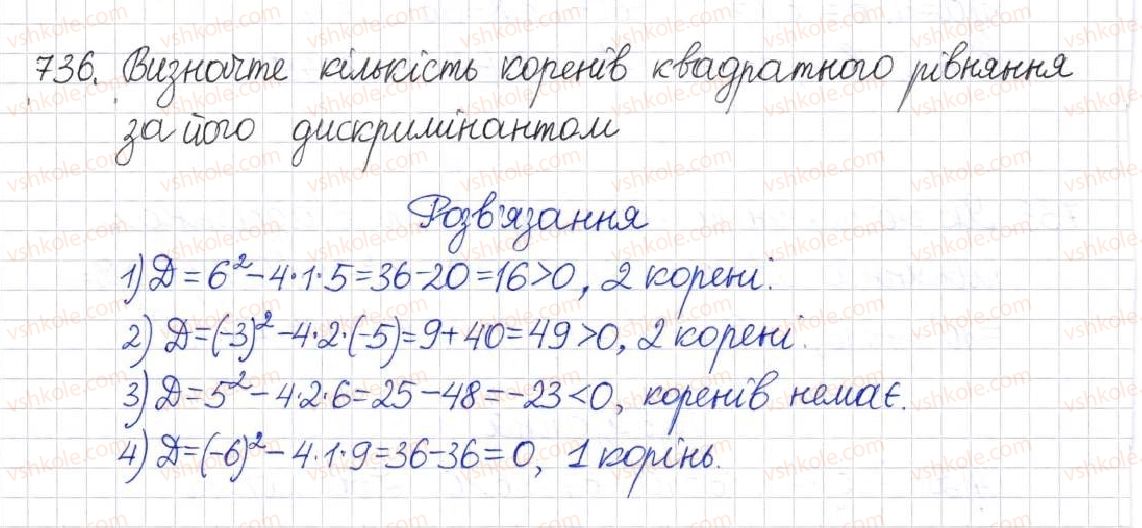 736. Визначте кількість коренів квадратного рівняння
за його дискримінантом
Розв'язання
1) Д = 6² - 4·1·5 = 36 - 20 = 16 > 0, 2 корені.
2) Д = (-3)² - 4·2·(-5) = 9 + 40 = 49 > 0, 2 корені.
3) Д = 5² - 4·2·6 = 25 - 48 = -23 < 0, коренів немає.
4) Д = (-6)² - 4·1·9 = 36 - 36 = 0, 1 корінь.